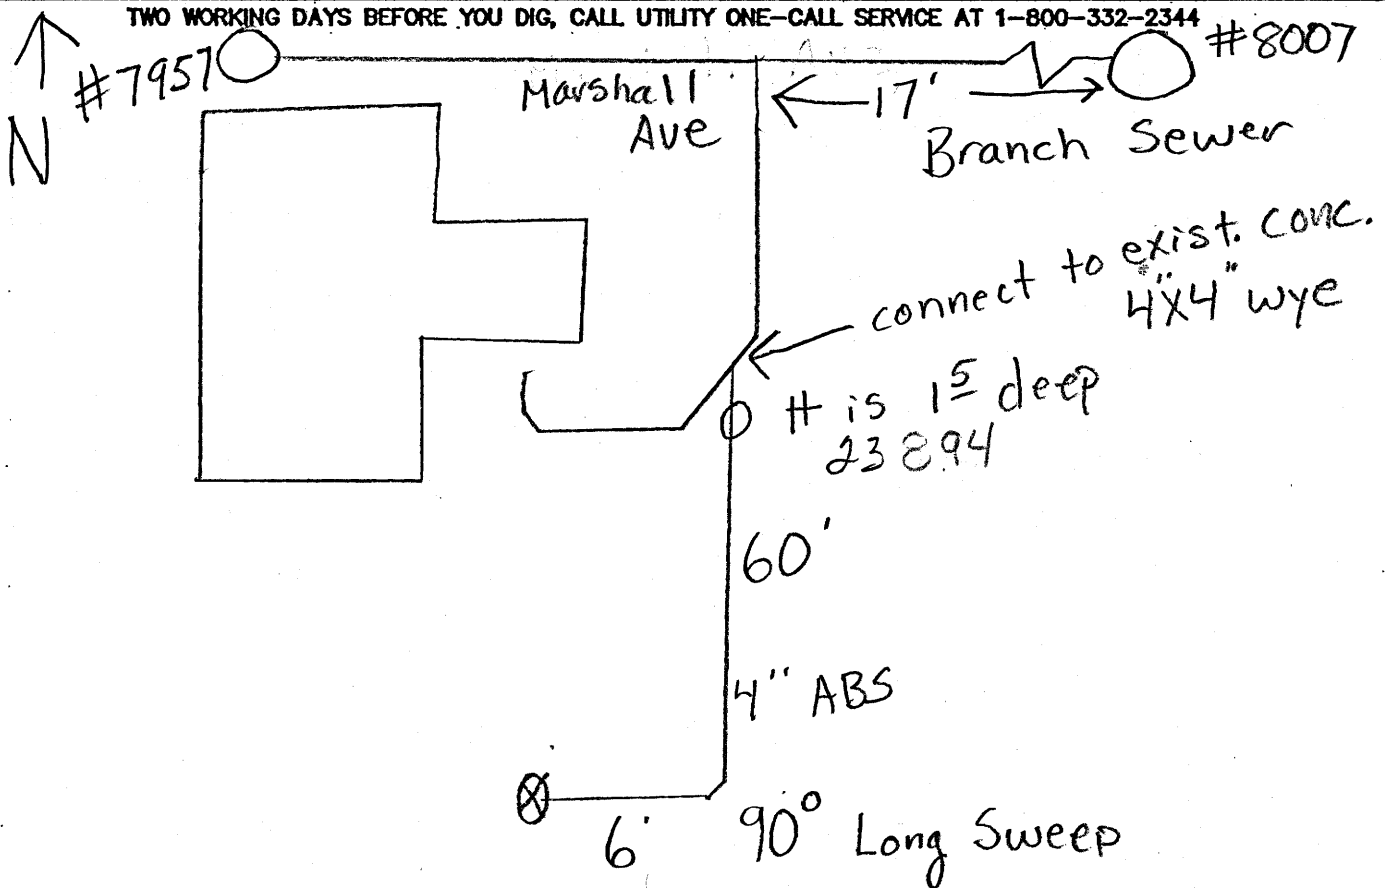 TWO WORKING DAYS BEFORE YOU DIG, CALL UTILITY ONE-CALL SERVICE AT 1-800-332-2344
N
#7957
#8007
Marshall
Ave
17'
Branch Sewer
connect to exist. conc.
4"x4" wye
It is 1⁵ deep
23894
60'
4" ABS
6'
90° Long Sweep